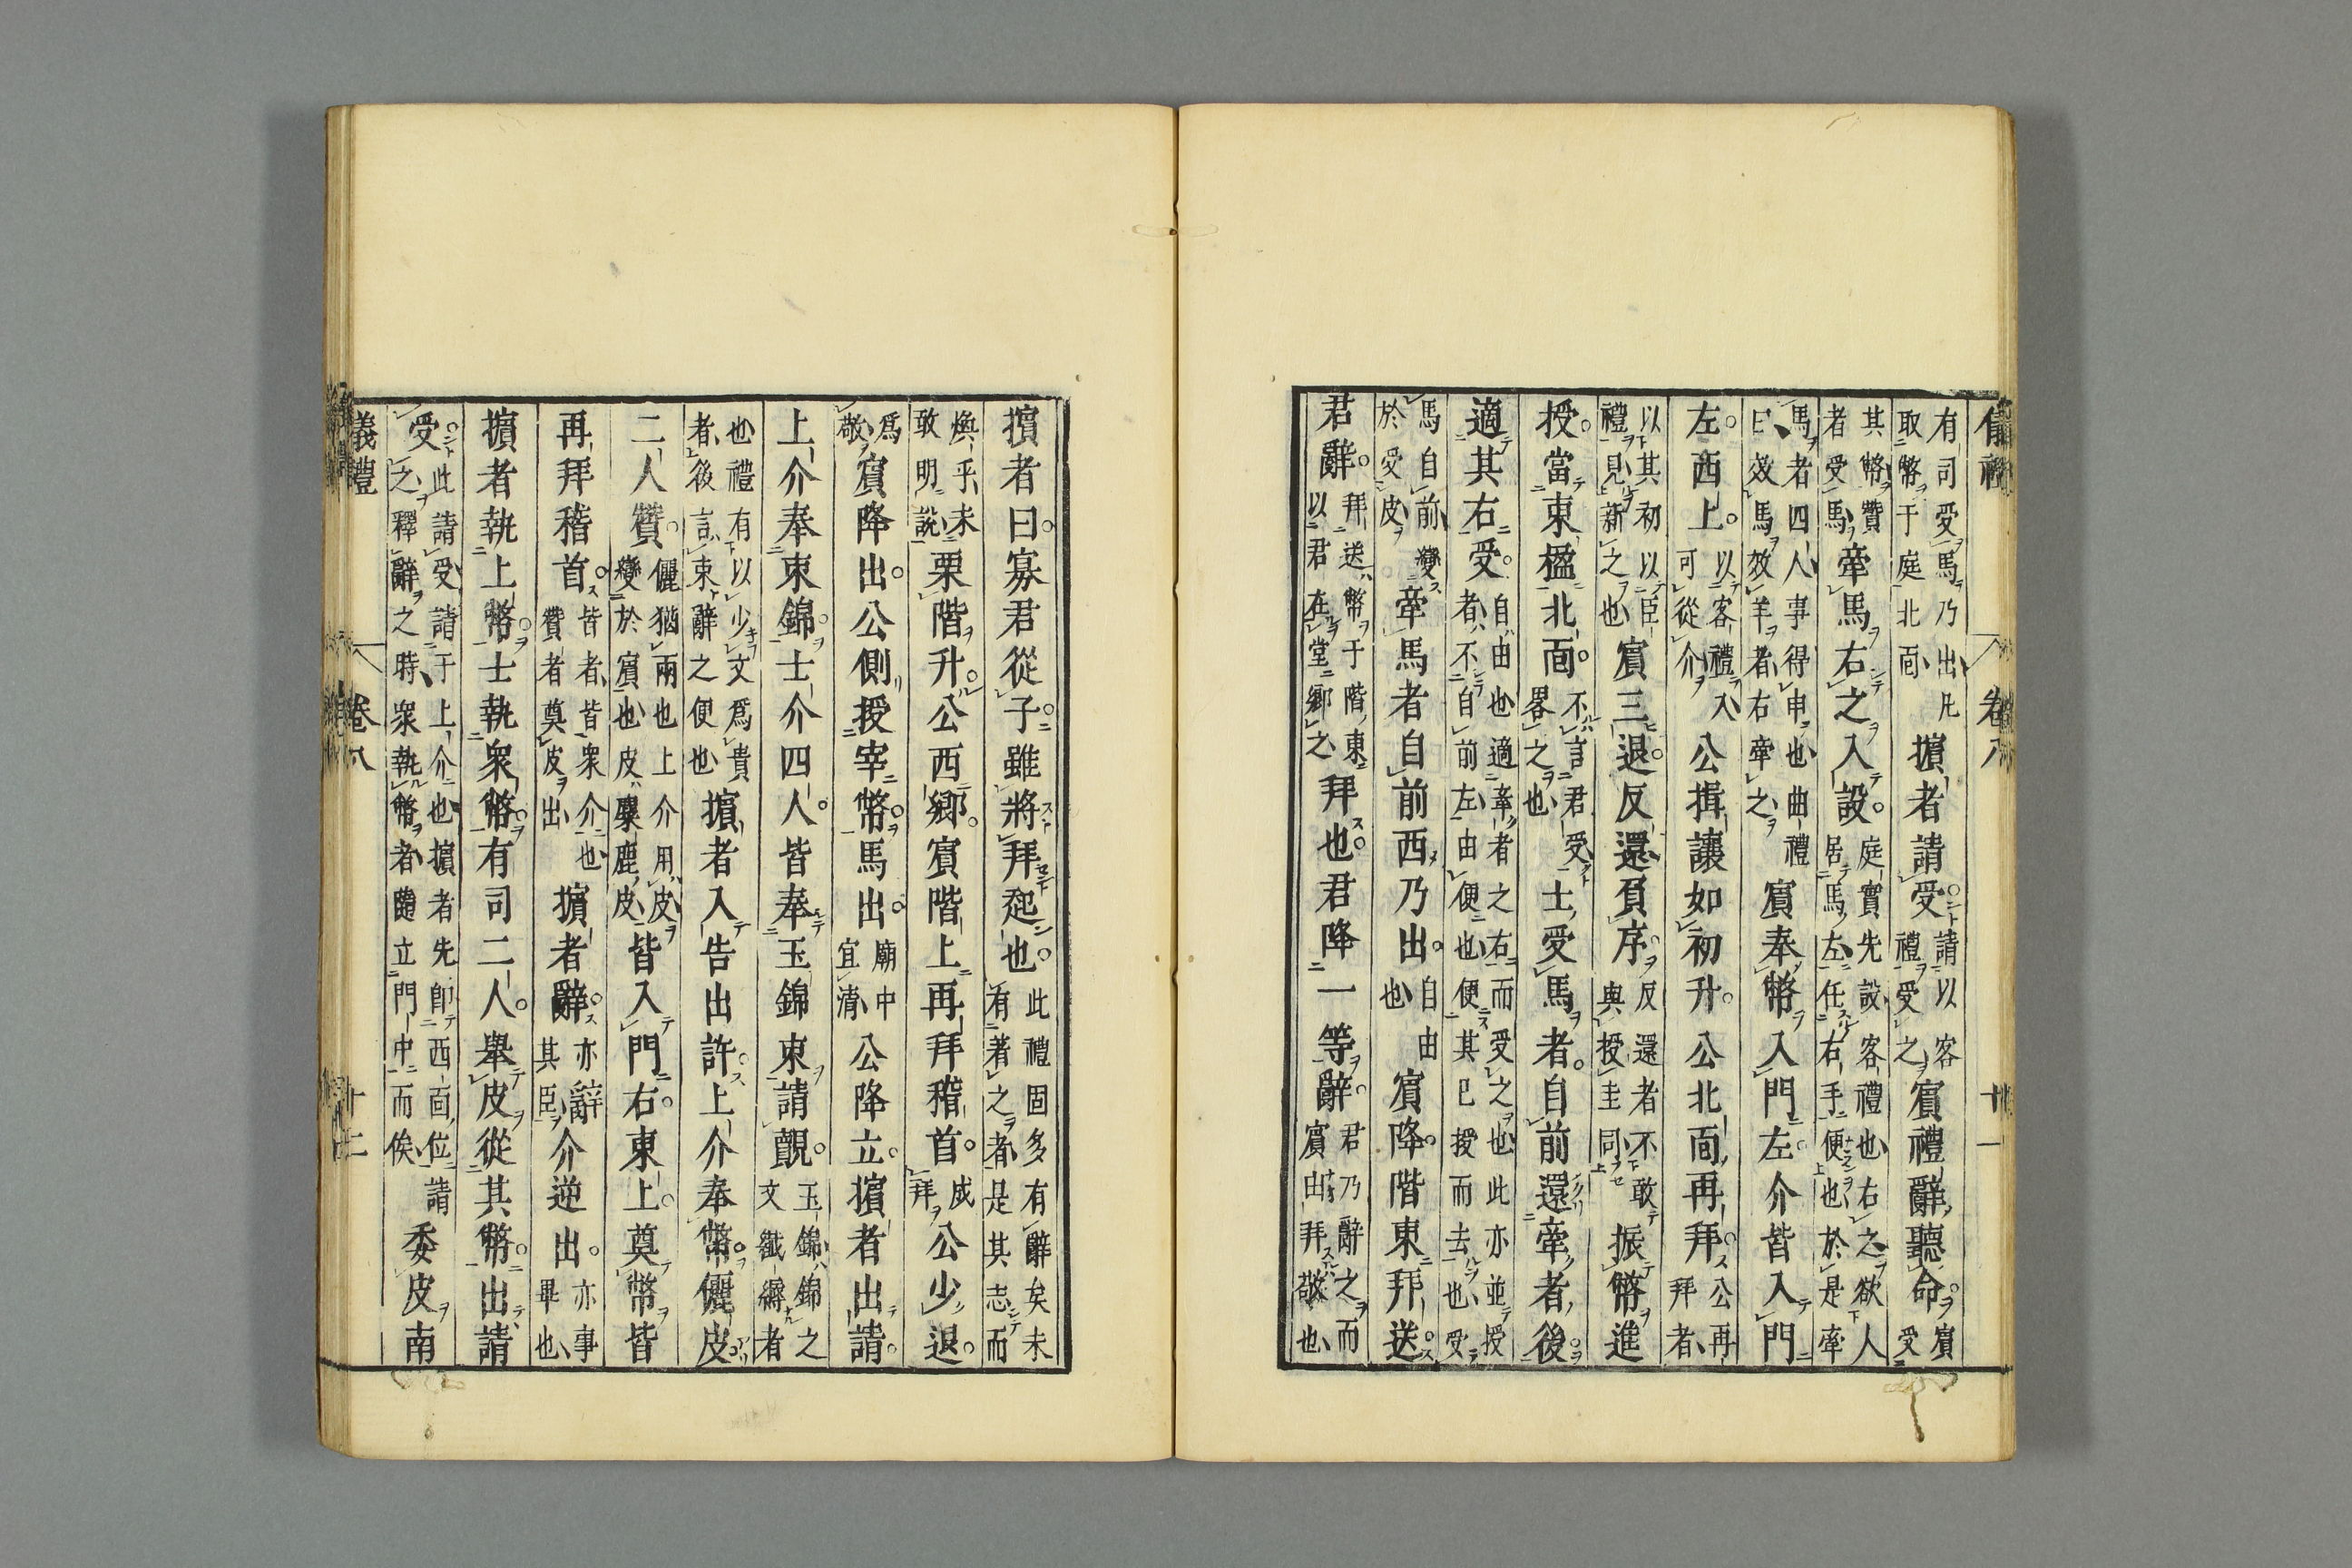 儀禮 卷八 十一
有司受馬乃出凡取幣于庭北面擯者請受請以客禮受之賓禮辭聽命賓受
其幣贊者受馬牽馬右之入設庭實先設客禮也右之欲人居馬左任右手便也於是牽
馬者四人事得申也曲禮曰效馬效羊者右牽之賓奉幣入門左介皆入門
左西上以客禮入可從介公揖讓如初升公北面再拜公再拜者
以其初以臣禮見新之也賓三退反還負序反還者不敢與授圭同振幣進
授當東楹北面不言君受畧之也士受馬者自前還牽者後
適其右受自由也適牽者之右而受之也此亦並授者不自前左由便也便其已授而去也受
馬自前變於受皮牽馬者自前西乃出自由也賓降階東拜送
君辭拜送幣于階東以君在堂鄉之拜也君降一等辭君乃辭之而賓由拜敬也
擯者曰寡君從子雖將拜起也此禮固多有辭矣未有著之者是其志而
煥乎未敢明說栗階升公西鄉賓階上再拜稽首成拜公少退
爲敬賓降出公側授宰幣馬出廟中宜清公降立擯者出請
上介奉束錦士介四人皆奉玉錦束請覿玉錦錦之文纖縟者
也禮有以少文爲貴者後言束辭之便也擯者入告出許上介奉幣儷皮
二人贊儷猶兩也上介用皮變於賓也皮麋鹿皮皆入門右東上奠幣皆
再拜稽首皆者皆衆介也贊者奠皮出擯者辭亦辭其臣介逆出亦事畢也
擯者執上幣士執衆幣有司二人舉皮從其幣出請
受此請受請于上介也擯者先卽西面位請之釋辭之時衆執幣者隨立門中而俟委皮南
儀禮 卷八 十二